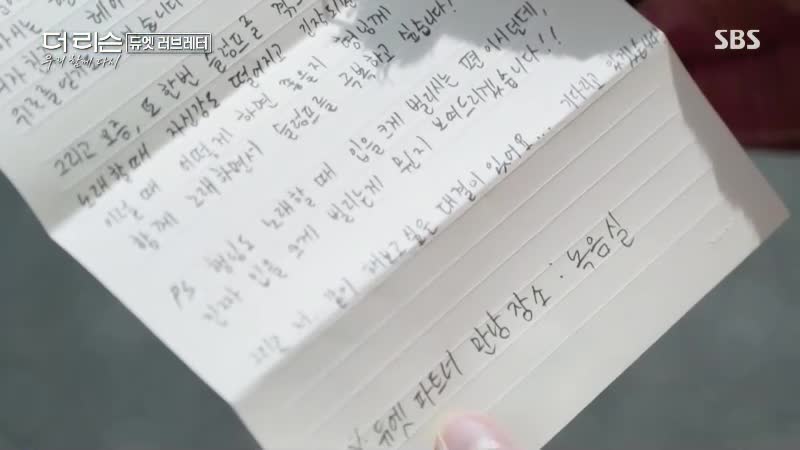 더 리슨 듀엣 러브레터
우리 함께 다시
SBS
그리고 요즘, 또 한번 슬럼프를
노래할때 자신감도 떨어지고
이럴 때 어떻게 하면 좋을지 형님께
함께 노래하면서 슬럼프를 극복하고 싶습니다!
PS 형님도 노래할 때 입을 크게 벌리시는 편이시던데,
진짜 입을 크게 벌리는게 뭔지 보여드리겠습니다!!
그리고 저 같이 해보고싶은 대결이 있어요... 기다리고 있겠습니다
듀엣 파트너 만남 장소 : 녹음실